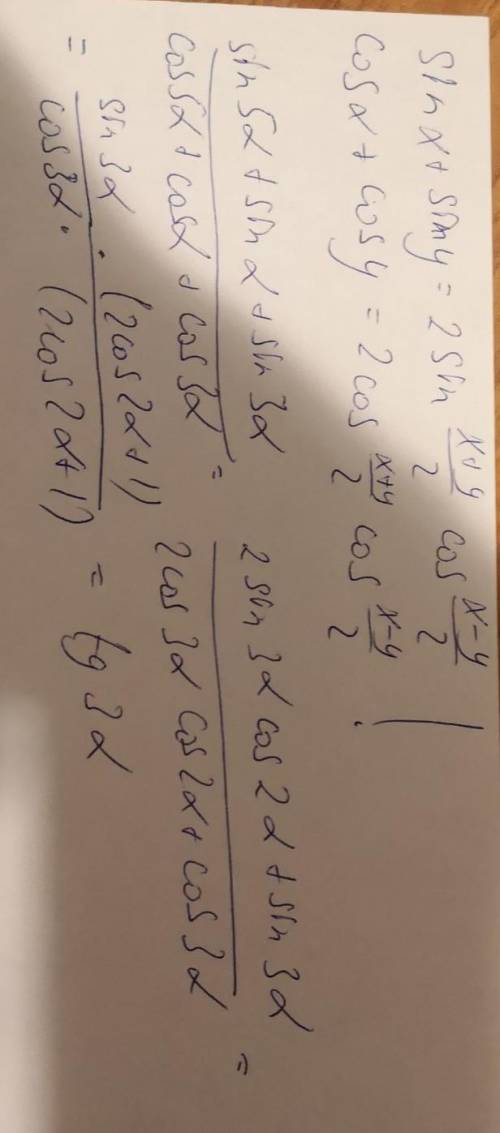 sin x + sin y = 2 sin (x+y)/2 cos (x-y)/2
cos x + cos y = 2 cos (x+y)/2 cos (x-y)/2 !
(sin 5α + sin α + sin 3α)/(cos 5α + cos α + cos 3α) = (2 sin 3α cos 2α + sin 3α)/(2 cos 3α cos 2α + cos 3α) =
= (sin 3α · (2 cos 2α + 1))/(cos 3α · (2 cos 2α + 1)) = tg 3α